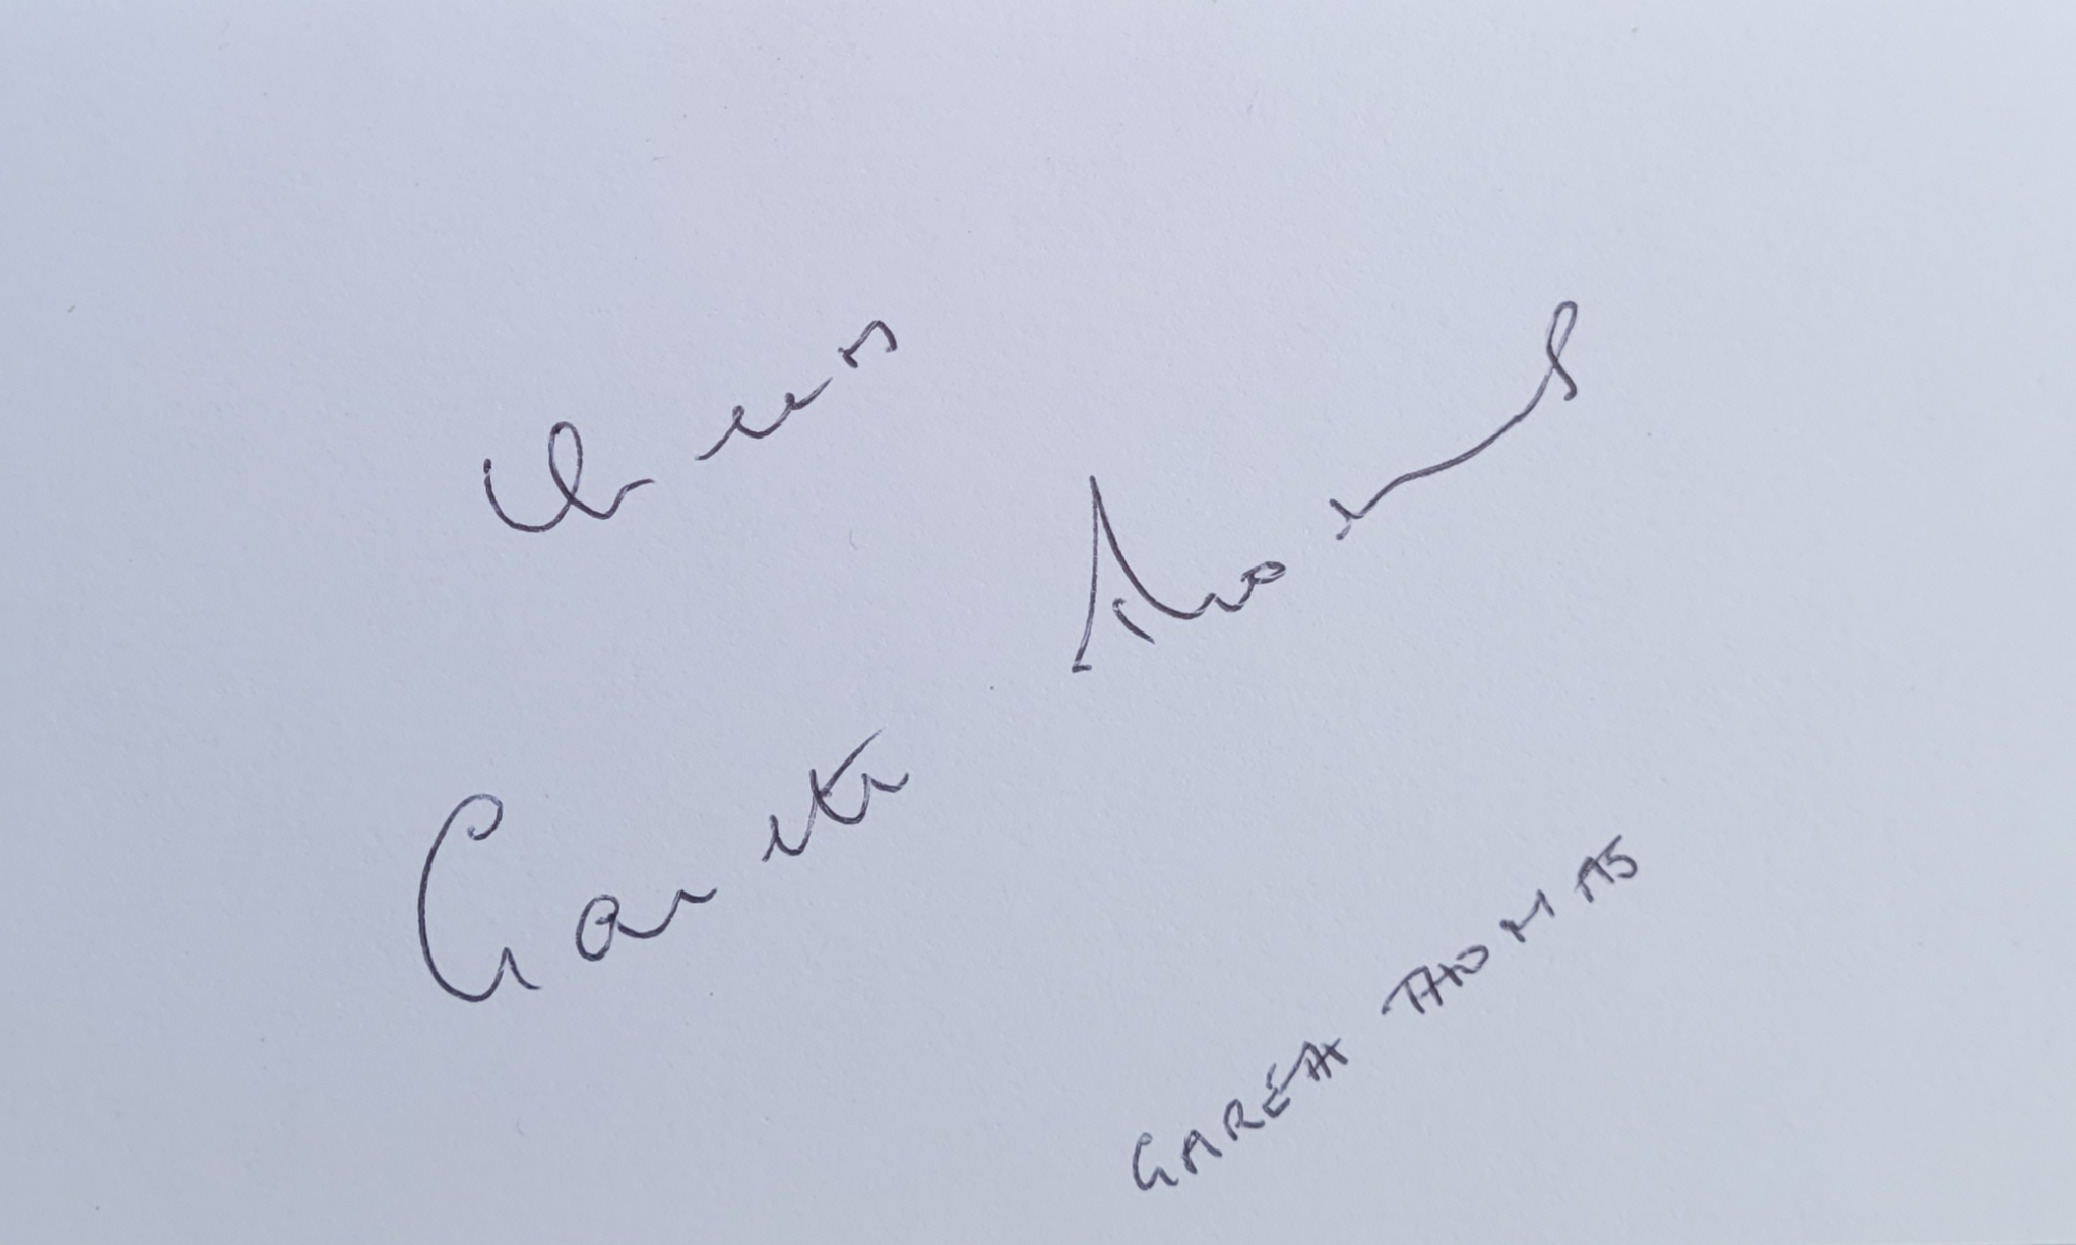 Cheers
Gareth Thomas
GARETH THOMAS